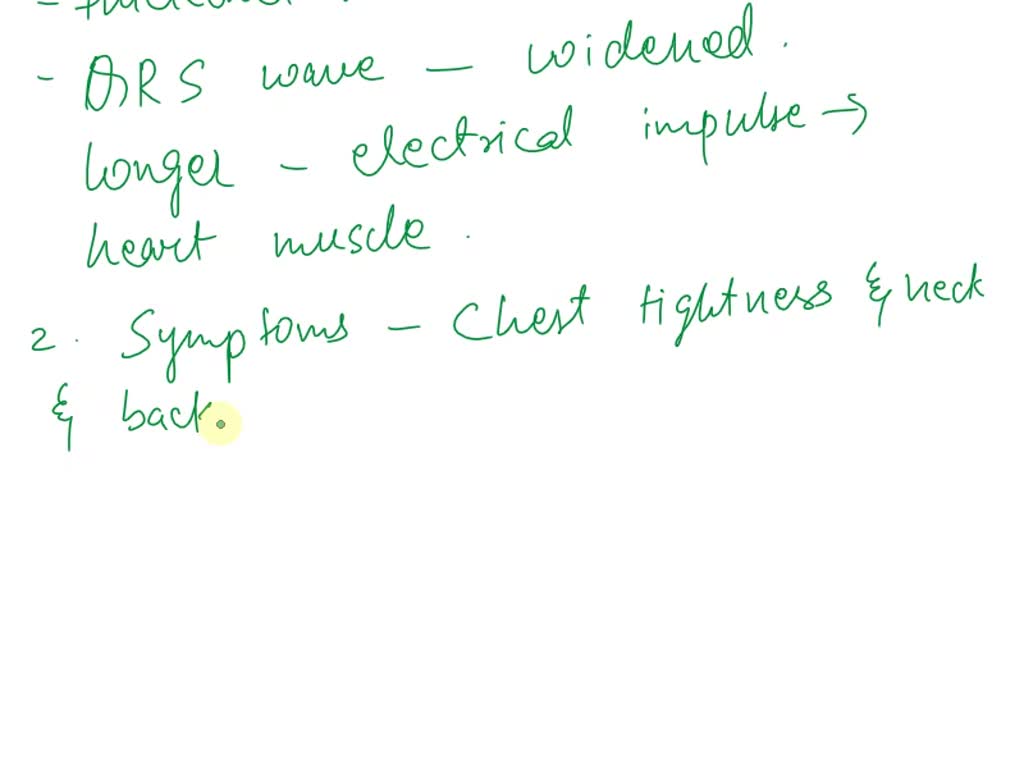 - QRS wave - widened.
Longer - electrical impulse →
heart muscle.
2. Symptoms - Chest tightness & neck
& back.